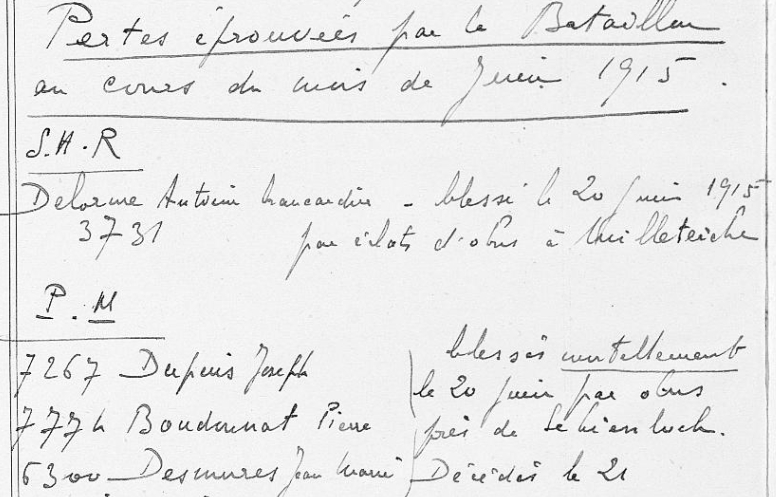 Pertes éprouvées par le Bataillon
au cours du mois de Juin 1915.
S.H.R
Delorme Antoine brancardier - blessé le 20 Juin 1915
3731 par éclats d'obus à
P.M
7267 Dupuis Joseph blessés mortellement
le 20 juin par obus
7774 Boudonnat Pierre près de
6300 Desmures Jean Marie Décédés le 21